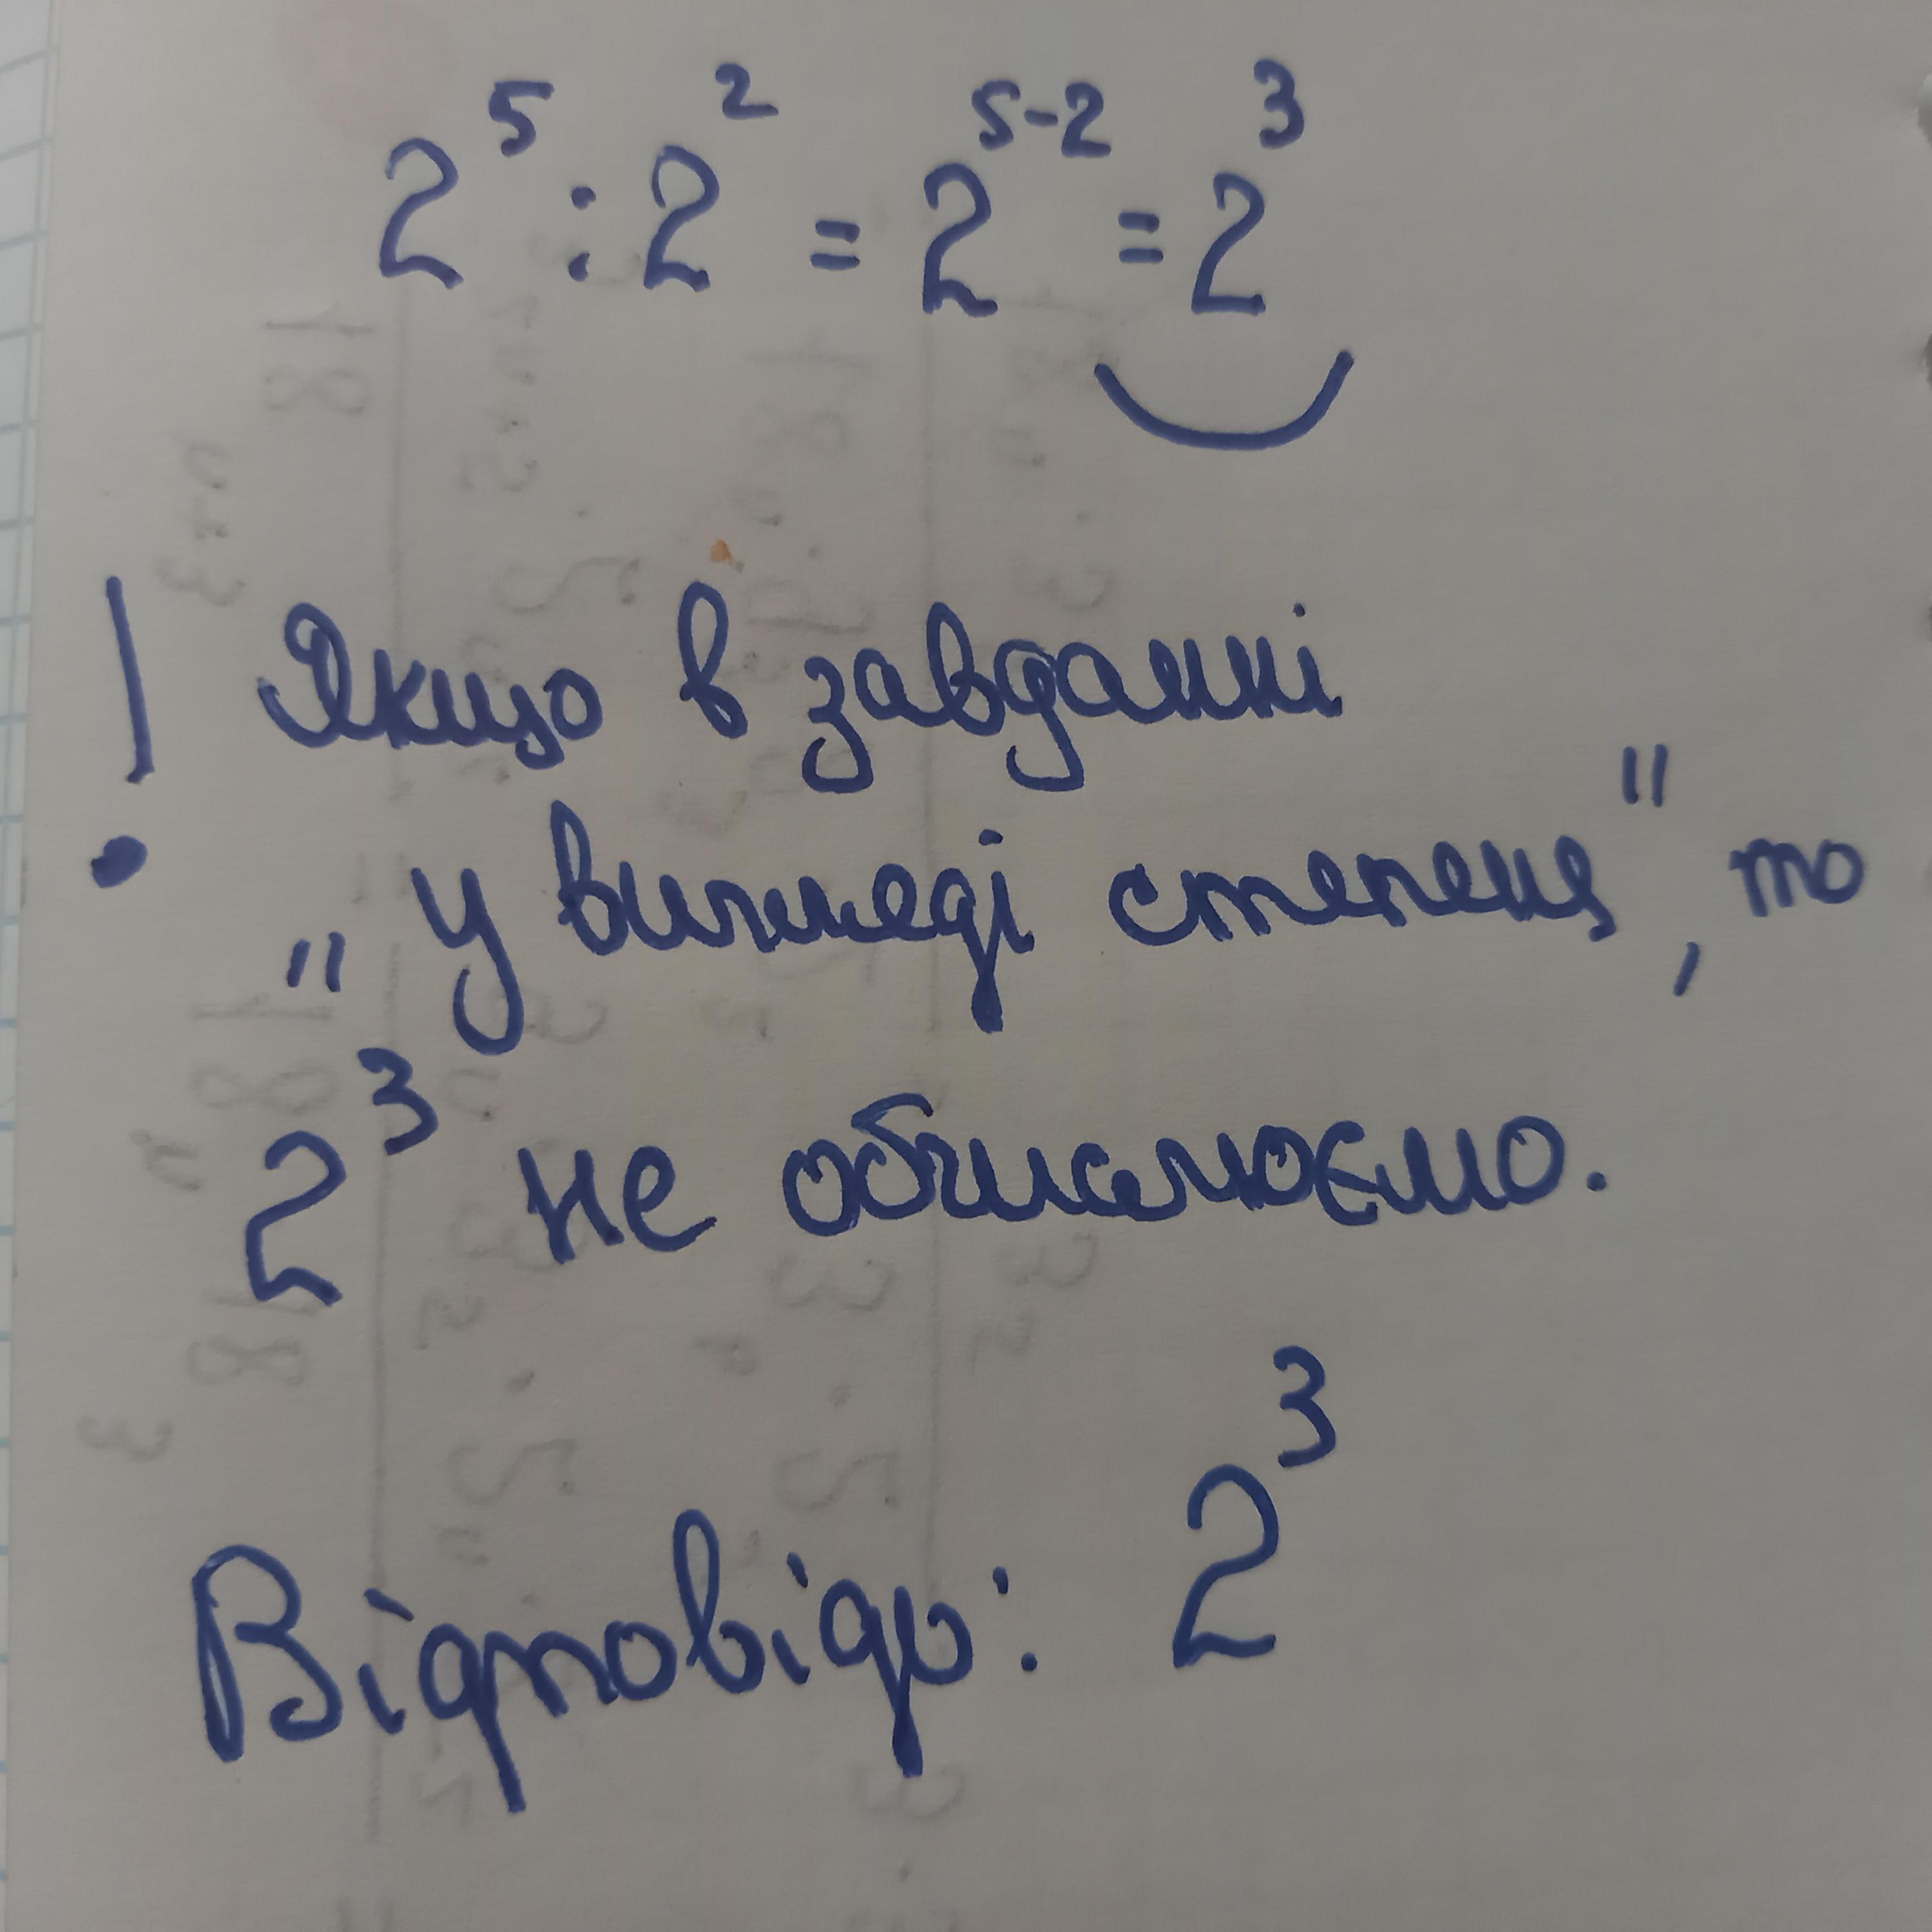 2⁵ : 2² = 2⁵⁻² = 2³
! Якщо в завданні
"у вигляді степеня", то
2³ не обчислюємо.
Відповідь: 2³